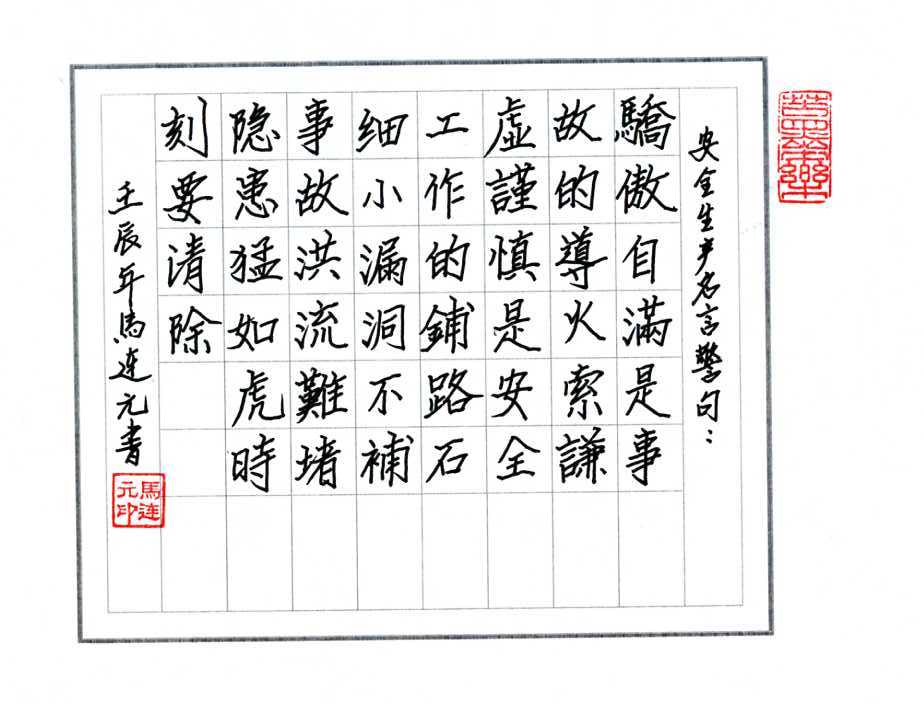 安全生产名言警句：
驕傲自滿是事
故的導火索謙
虛謹慎是安全
工作的鋪路石
细小漏洞不補
事故洪流難堵
隐患猛如虎時
刻要清除
壬辰年馬连元書
馬连元印